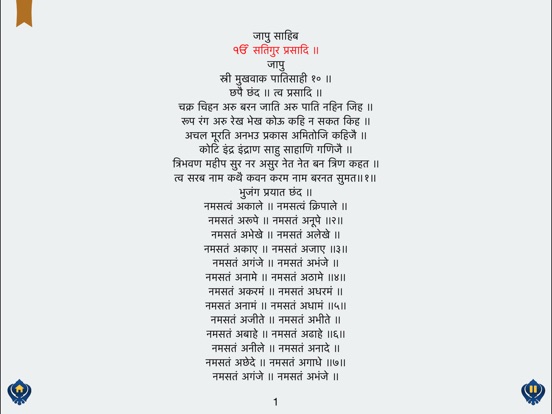 जापु साहिब
ੴ सतिगुर प्रसादि ॥
जापु
स्री मुखवाक पातिसाही १० ॥
छपै छंद ॥ त्व प्रसादि ॥
चक्र चिहन अरु बरन जाति अरु पाति नहिन जिह ॥
रूप रंग अरु रेख भेख कोऊ कहि न सकत किह ॥
अचल मूरति अनभउ प्रकास अमितोजि कहिजै ॥
कोटि इंद्र इंद्राण साहु साहाणि गणिजै ॥
त्रिभवण महीप सुर नर असुर नेत नेत बन त्रिण कहत ॥
त्व सरब नाम कथै कवन करम नाम बरनत सुमत॥१॥
भुजंग प्रयात छंद ॥
नमसत्वं अकाले ॥ नमसत्वं क्रिपाले ॥
नमसतं अरूपे ॥ नमसतं अनूपे ॥२॥
नमसतं अभेखे ॥ नमसतं अलेखे ॥
नमसतं अकाए ॥ नमसतं अजाए ॥३॥
नमसतं अगंजे ॥ नमसतं अभंजे ॥
नमसतं अनामे ॥ नमसतं अठामे ॥४॥
नमसतं अकरमं ॥ नमसतं अधरमं ॥
नमसतं अनामं ॥ नमसतं अधामं ॥५॥
नमसतं अजीते ॥ नमसतं अभीते ॥
नमसतं अबाहे ॥ नमसतं अढाहे ॥६॥
नमसतं अनीले ॥ नमसतं अनादे ॥
नमसतं अछेदे ॥ नमसतं अगाधे ॥७॥
नमसतं अगंजे ॥ नमसतं अभंजे ॥
1